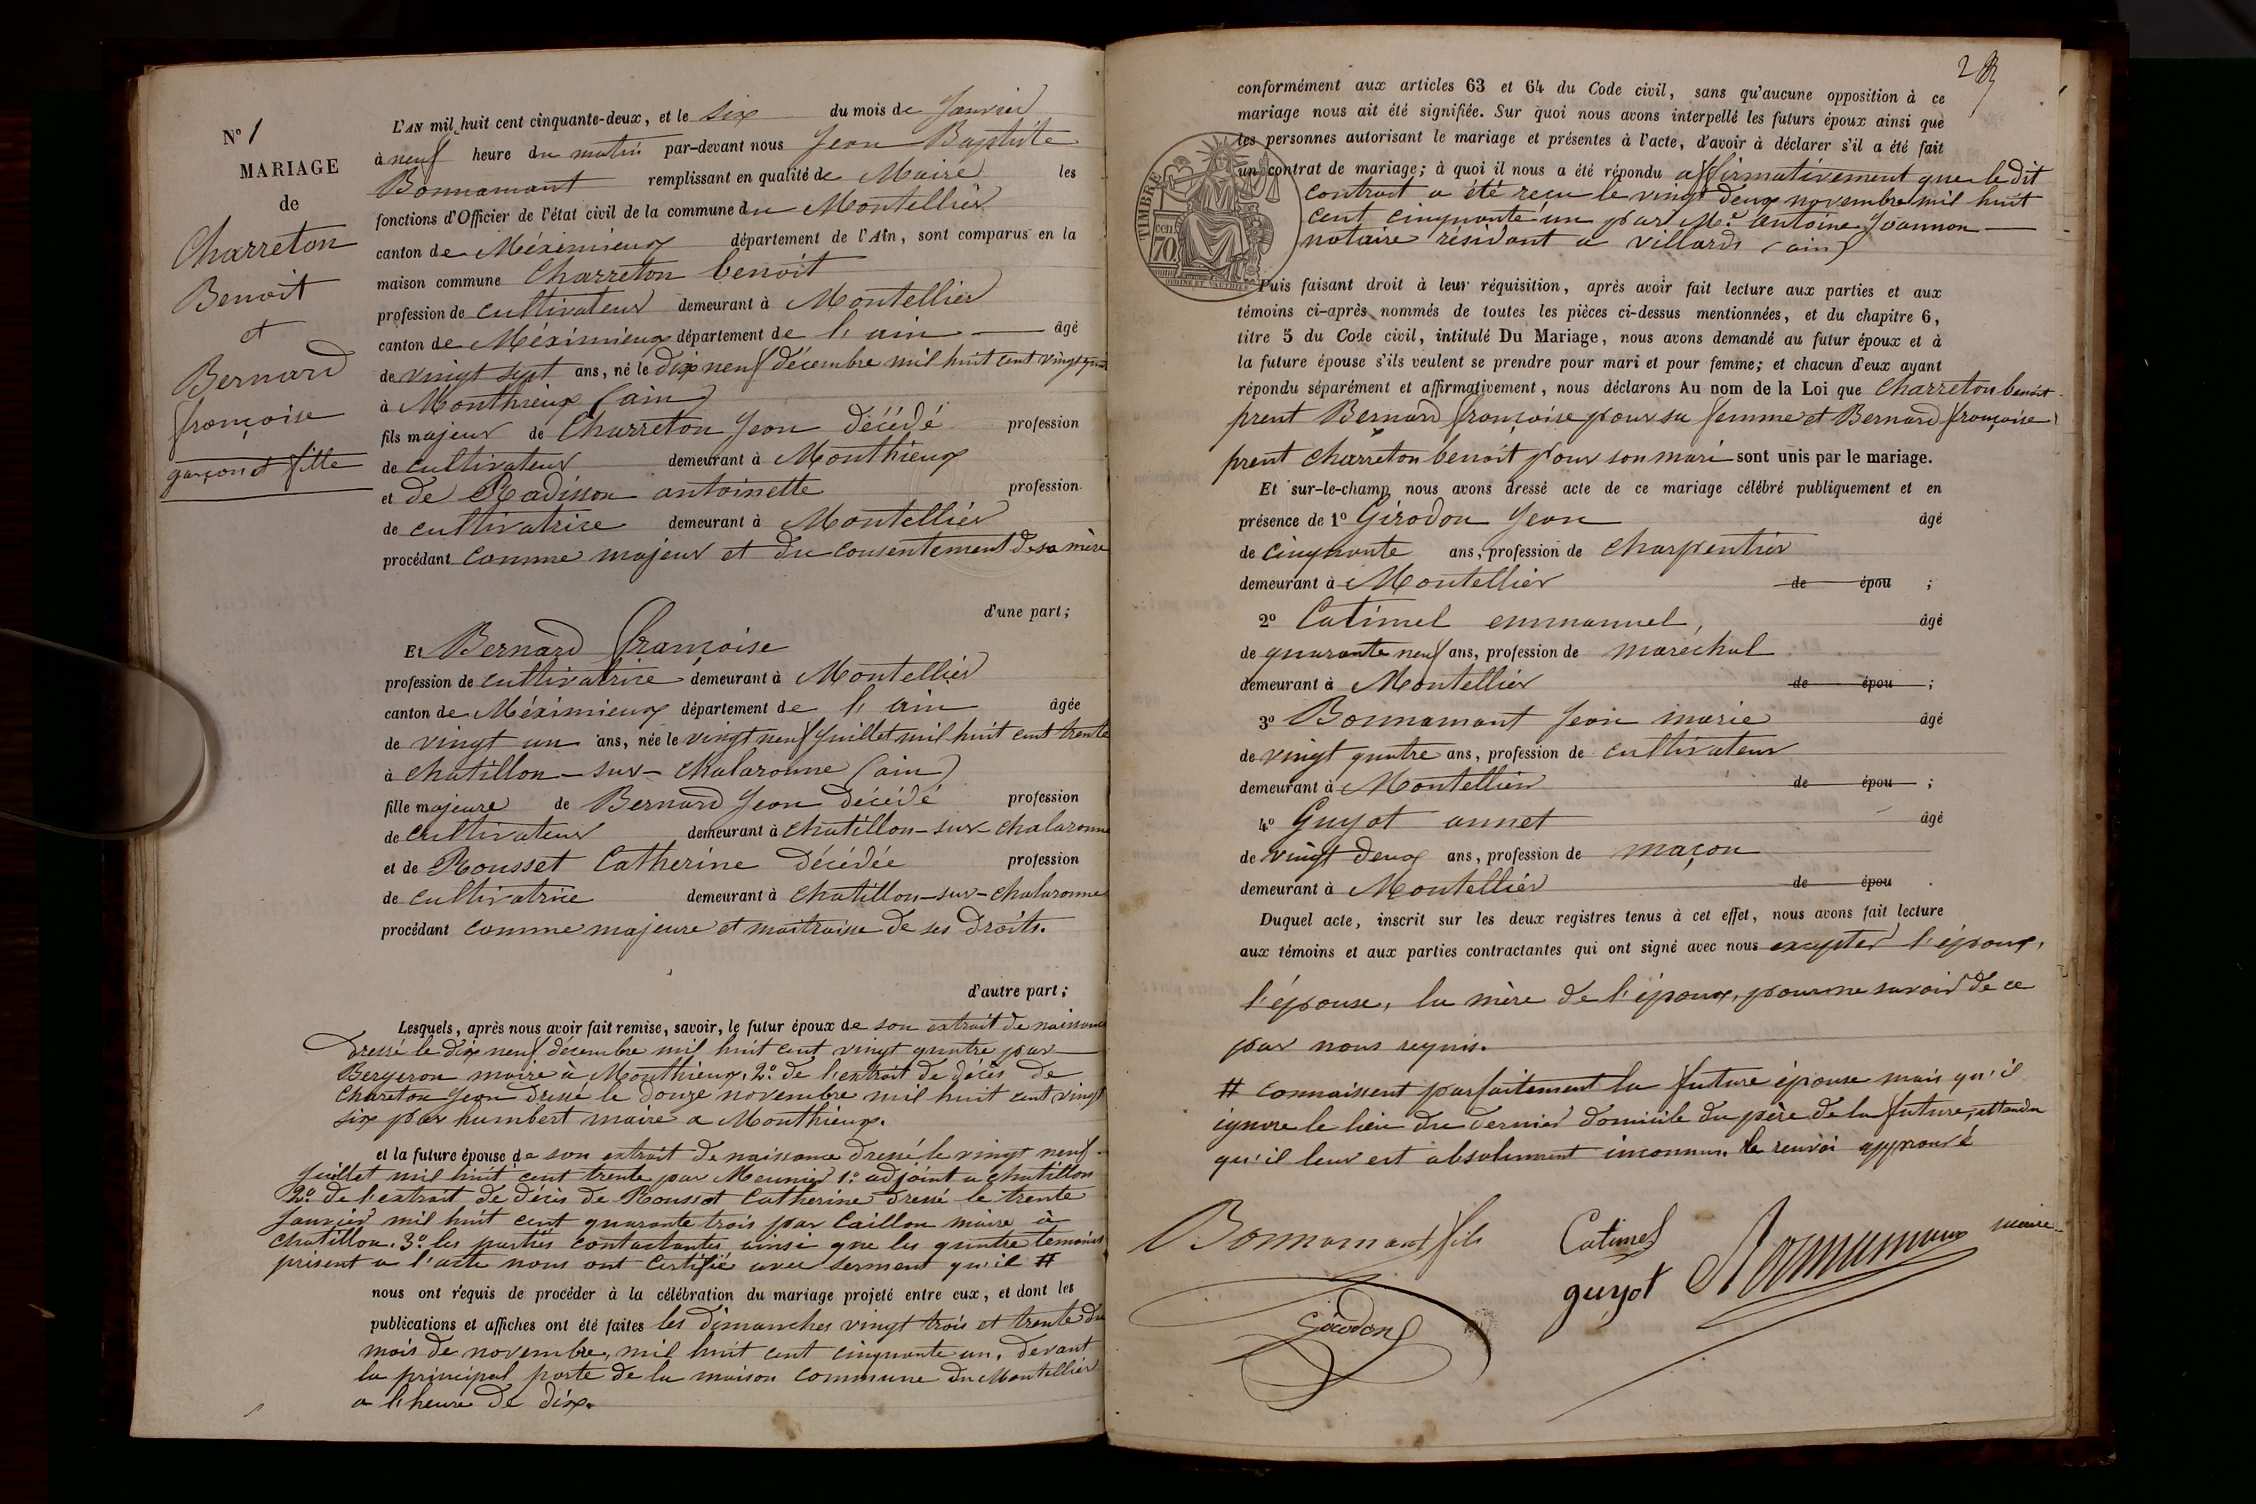 N° 1
MARIAGE
de
Charreton
Benoit
et
Bernard
françoise
garçon et fille
L'AN mil huit cent cinquante-deux, et le six du mois de Janvier
à neuf heure du matin par-devant nous Jean Baptiste
Bonnamant remplissant en qualité de Maire les
fonctions d'Officier de l'état civil de la commune du Montellier
canton de Méximieux département de l'Ain, sont comparus en la
maison commune Charreton benoit
profession de cultivateur demeurant à Montellier
canton de Méximieux département de l'ain âgé
de vingt sept ans, né le dix neuf décembre mil huit cent vingt quatre
à Monthieux (ain)
fils majeur de Charreton Jean décédé profession
de cultivateur demeurant à Monthieux
et de Radisson antoinette profession
de cultivatrice demeurant à Montellier
procédant comme majeur et du consentement de sa mère
d'une part;
Et Bernard françoise
profession de cultivatrice demeurant à Montellier
canton de Méximieux département de l'ain âgée
de vingt un ans, née le vingt neuf Juillet mil huit cent trente
à chatillon-sur-chalaronne (ain)
fille majeure de Bernard Jean décédé profession
de cultivateur demeurant à chatillon-sur-chalaronne
et de Rousset Catherine décédée profession
de cultivatrice demeurant à chatillon-sur-chalaronne
procédant comme majeure et maitraisse de ses droits.
d'autre part;
Lesquels, après nous avoir fait remise, savoir, le futur époux de son extrait de naissance
dressé le dix neuf décembre mil huit cent vingt quatre par
Bergeron maire à Monthieux. 2° de l'extrait de décès de
Chareton Jean dressé le douze novembre mil huit cent vingt
six par humbert maire a Monthieux.
et la future épouse de son extrait de naissance dressé le vingt neuf
Juillet mil huit cent trente par Meunier 1° adjoint a chatillon
2° de l'extrait de décès de Rousset Catherine dressé le trente
Janvier mil huit cent quarante trois par Caillon maire à
chatillon. 3° les parties contactantes ainsi que les quatre temoins
présent a l'acte nous ont certifié avec serment qu'il #
nous ont requis de procéder à la célébration du mariage projeté entre eux, et dont les
publications et affiches ont été faites les dimanches vingt trois et trente du
mois de novembre, mil huit cent cinquante un. devant
la principal porte de la maison commune du Montellier
a l'heure de dix.
conformément aux articles 63 et 64 du Code civil, sans qu'aucune opposition à ce
mariage nous ait été signifiée. Sur quoi nous avons interpellé les futurs époux ainsi que
les personnes autorisant le mariage et présentes à l'acte, d'avoir à déclarer s'il a été fait
un contrat de mariage; à quoi il nous a été répondu affirmativement que le dit
contrat a été reçu le vingt deux novembre mil huit
cent cinquante un par Me antoine Joannon
notaire résidant a villards (ain)
TIMBRE
cen.
70
Puis faisant droit à leur réquisition, après avoir fait lecture aux parties et aux
témoins ci-après nommés de toutes les pièces ci-dessus mentionnées, et du chapitre 6,
titre 5 du Code civil, intitulé Du Mariage, nous avons demandé au futur époux et à
la future épouse s'ils veulent se prendre pour mari et pour femme; et chacun d'eux ayant
répondu séparément et affirmativement, nous déclarons Au nom de la Loi que Charreton benoit
prent Bernard françoise pour sa femme et Bernard françoise
prent charreton benoit pour son mari sont unis par le mariage.
Et sur-le-champ nous avons dressé acte de ce mariage célébré publiquement et en
présence de 1° Girodon Jean âgé
de cinquante ans, profession de charpentier
demeurant à Montellier de épou ;
2° Catimel emmanuel, âgé
de quarante neuf ans, profession de maréchal
demeurant à Montellier de épou ;
3° Bonnamant Jean marie âgé
de vingt quatre ans, profession de cultivateur
demeurant à Montellier de épou ;
4° Guyot annet âgé
de vingt deux ans, profession de maçon
demeurant à Montellier de épou .
Duquel acte, inscrit sur les deux registres tenus à cet effet, nous avons fait lecture
aux témoins et aux parties contractantes qui ont signé avec nous excepter l'époux,
l'épouse, la mère de l'époux, pour ne savoir de ce
par nous requis.
# connaissent parfaitement la future épouse mais qu'il
ignore le lieu du dernier domicile du père de la future, attendu
qu'il leur est absolument inconnu. le renvoi approuvé
Bonnamant fils Catimel Bonnamant maire
guyot
Girodon